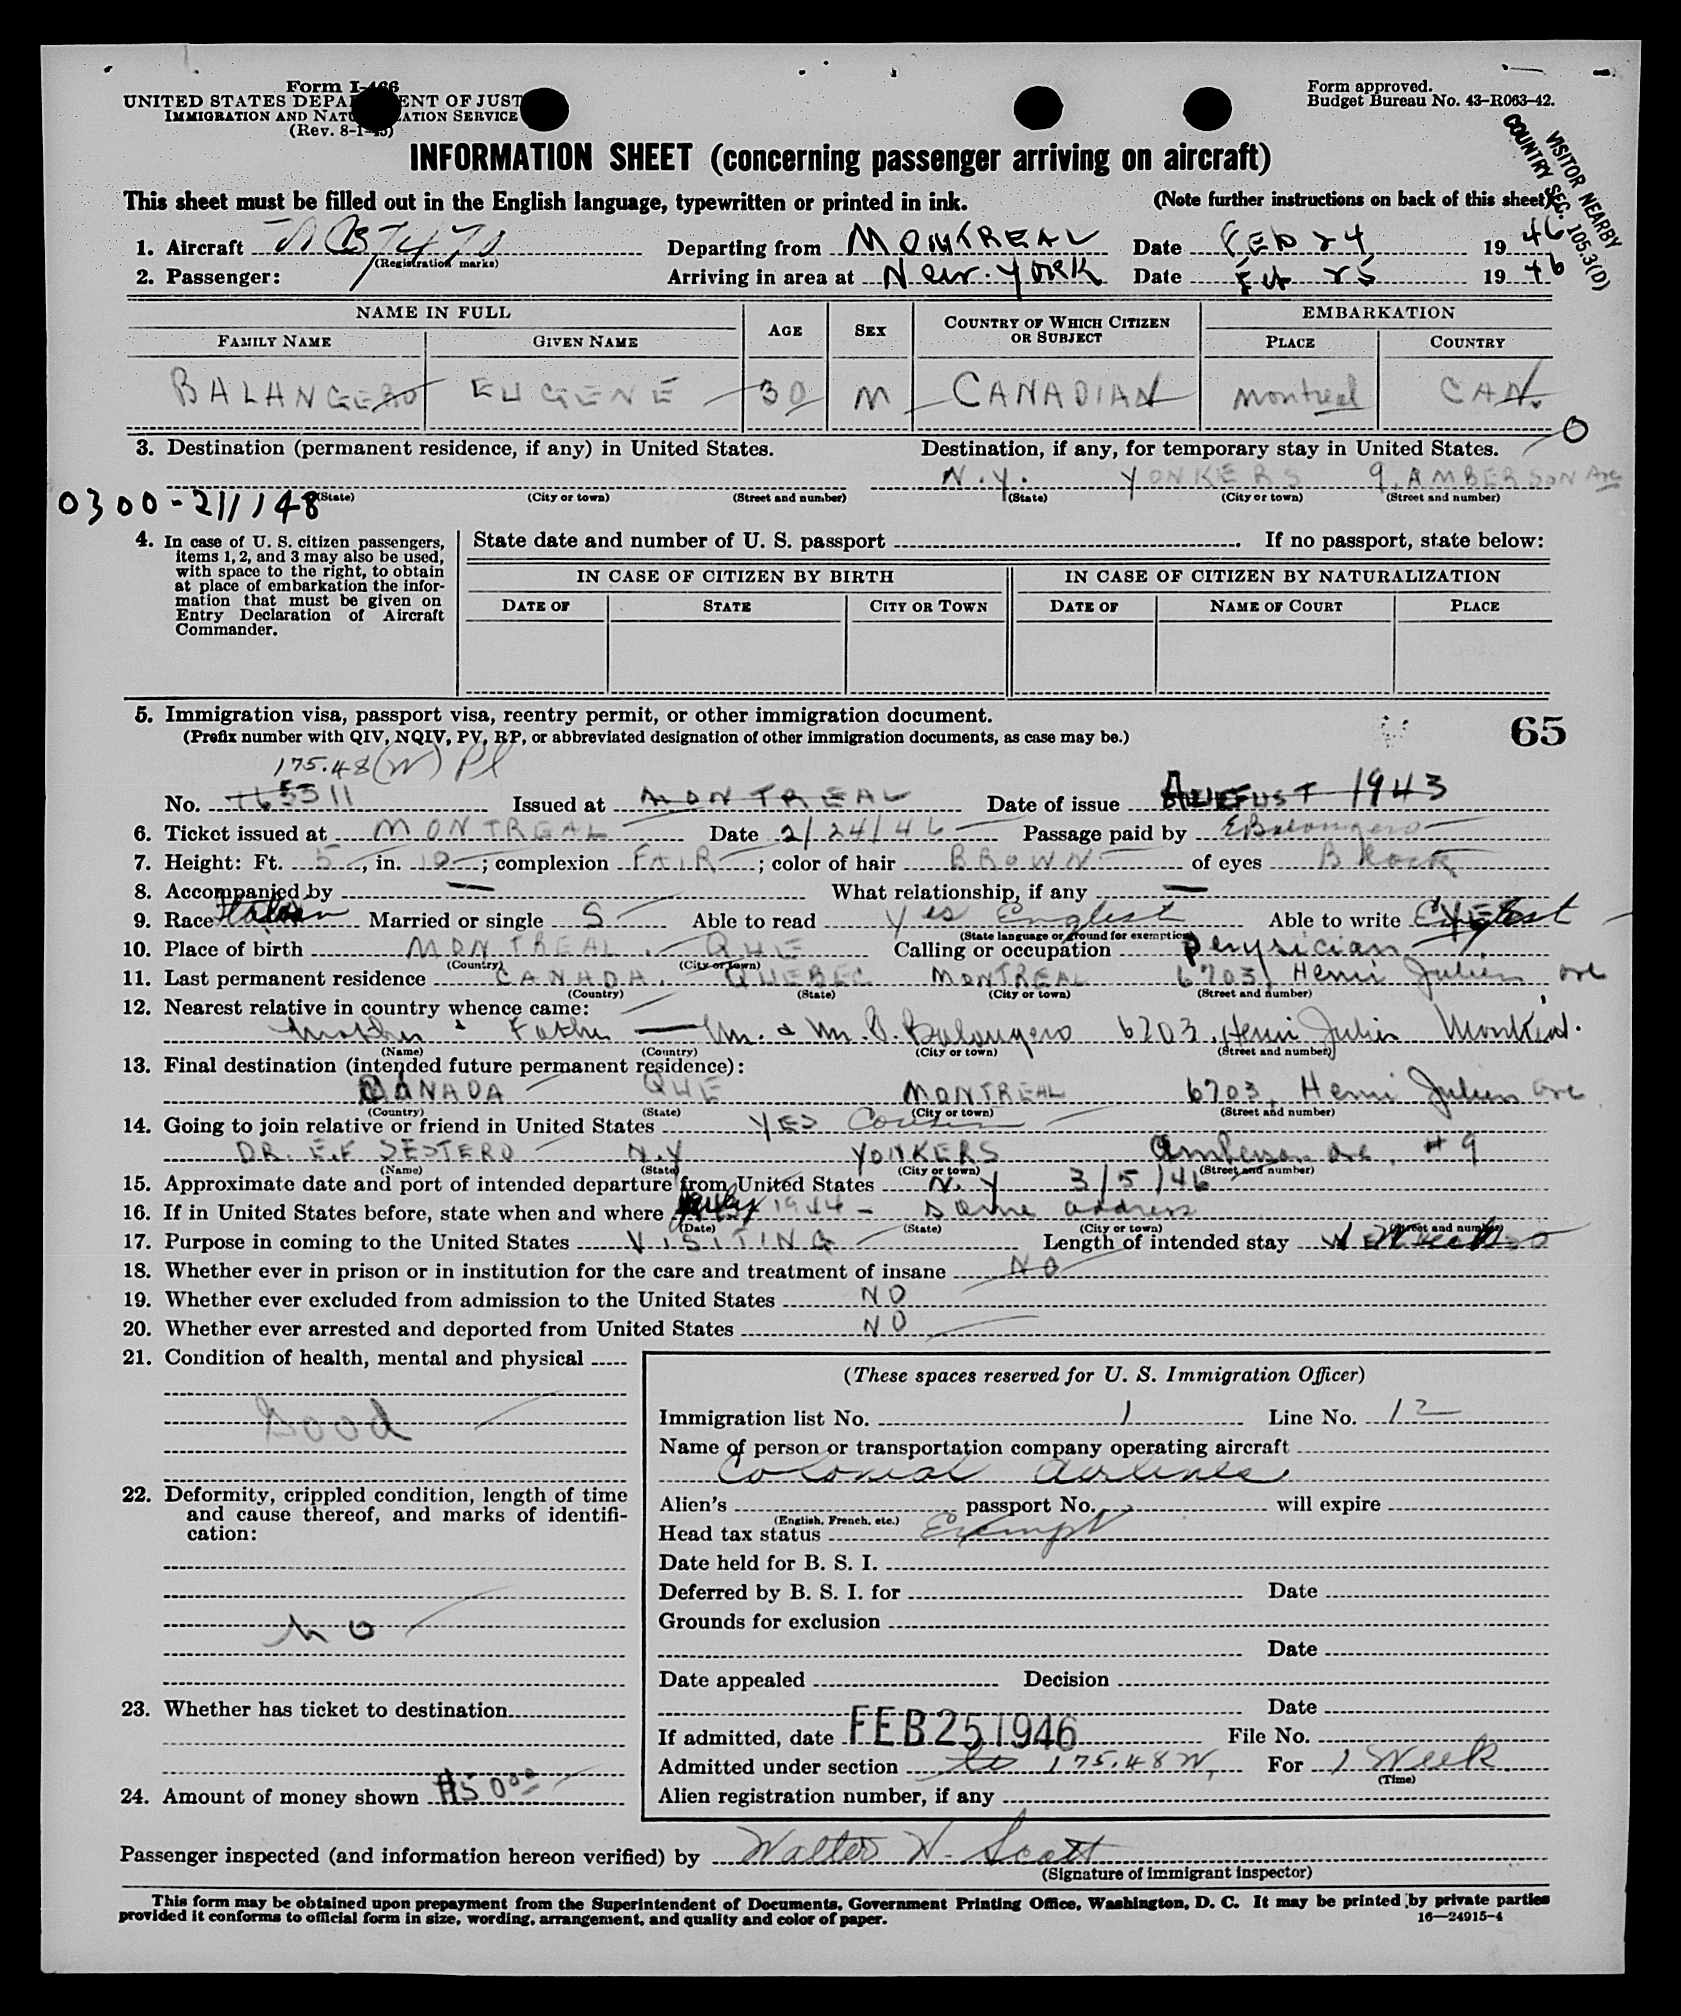 Form I-466
UNITED STATES DEPARTMENT OF JUST
IMMIGRATION AND NATURALIZATION SERVICE
(Rev. 8-1-45)
Form approved.
Budget Bureau No. 43-R063-42.
VISITOR NEARBY
COUNTRY SEC. 105.3(D)
INFORMATION SHEET (concerning passenger arriving on aircraft)
This sheet must be filled out in the English language, typewritten or printed in ink. (Note further instructions on back of this sheet)
1. Aircraft (Registration marks) Departing from MONTREAL Date FEB 24 1946
2. Passenger: Arriving in area at New-York Date 25 1946
NAME IN FULL AGE SEX COUNTRY OF WHICH CITIZEN OR SUBJECT EMBARKATION
FAMILY NAME GIVEN NAME PLACE COUNTRY
BALANGERO EUGENE 30 M CANADIAN Montreal CAN.
0
3. Destination (permanent residence, if any) in United States. Destination, if any, for temporary stay in United States.
N.Y. YONKERS 9. AMBERSON Ave
(State) (City or town) (Street and number) (State) (City or town) (Street and number)
0300-211148
4. In case of U. S. citizen passengers, items 1, 2, and 3 may also be used, with space to the right, to obtain at place of embarkation the information that must be given on Entry Declaration of Aircraft Commander.
State date and number of U. S. passport . If no passport, state below:
IN CASE OF CITIZEN BY BIRTH IN CASE OF CITIZEN BY NATURALIZATION
DATE OF STATE CITY OR TOWN DATE OF NAME OF COURT PLACE
5. Immigration visa, passport visa, reentry permit, or other immigration document. 65
(Prefix number with QIV, NQIV, PV, RP, or abbreviated designation of other immigration documents, as case may be.)
175.48(W) Pl
No. 165511 Issued at MONTREAL Date of issue AUGUST 1943
6. Ticket issued at MONTREAL Date 2/24/46 Passage paid by E Balangero
7. Height: Ft. 5, in. 10; complexion FAIR; color of hair BROWN of eyes Black
8. Accompanied by — What relationship, if any —
9. Race Italian Married or single S Able to read yes English Able to write YES
(State language or ground for exemption)
10. Place of birth MONTREAL, QUE Calling or occupation physician
(Country) (City or town)
11. Last permanent residence CANADA. QUEBEC MONTREAL 6703, Henri Julien ave
(Country) (State) (City or town) (Street and number)
12. Nearest relative in country whence came:
Mother & Father — Mr. & M. Balangero 6703, Henri Julien Montreal.
(Name) (Country) (City or town) (Street and number)
13. Final destination (intended future permanent residence):
CANADA QUE MONTREAL 6703, Henri Julien ave
(Country) (State) (City or town) (Street and number)
14. Going to join relative or friend in United States YES Cousin
DR. E.F SESTERO N.Y YONKERS Amberson ave, #9
(Name) (State) (City or town) (Street and number)
15. Approximate date and port of intended departure from United States N.Y 3/5/46
16. If in United States before, state when and where 1944 - same address
(Date) (State) (City or town) (Street and number)
17. Purpose in coming to the United States VISITING Length of intended stay
18. Whether ever in prison or in institution for the care and treatment of insane NO
19. Whether ever excluded from admission to the United States NO
20. Whether ever arrested and deported from United States NO
21. Condition of health, mental and physical
Good
22. Deformity, crippled condition, length of time and cause thereof, and marks of identification:
No
23. Whether has ticket to destination
24. Amount of money shown $50.00
(These spaces reserved for U. S. Immigration Officer)
Immigration list No. 1 Line No. 12
Name of person or transportation company operating aircraft
Colonial Airlines
Alien's passport No. will expire
(English, French, etc.)
Head tax status Exempt
Date held for B. S. I.
Deferred by B. S. I. for Date
Grounds for exclusion
Date
Date appealed Decision
Date
If admitted, date FEB 25 1946 File No.
Admitted under section 175.48W, For 1 Week
(Time)
Alien registration number, if any
Passenger inspected (and information hereon verified) by Walter W. Scott
(Signature of immigrant inspector)
This form may be obtained upon prepayment from the Superintendent of Documents, Government Printing Office, Washington, D. C. It may be printed by private parties
provided it conforms to official form in size, wording, arrangement, and quality and color of paper. 16—24915-4